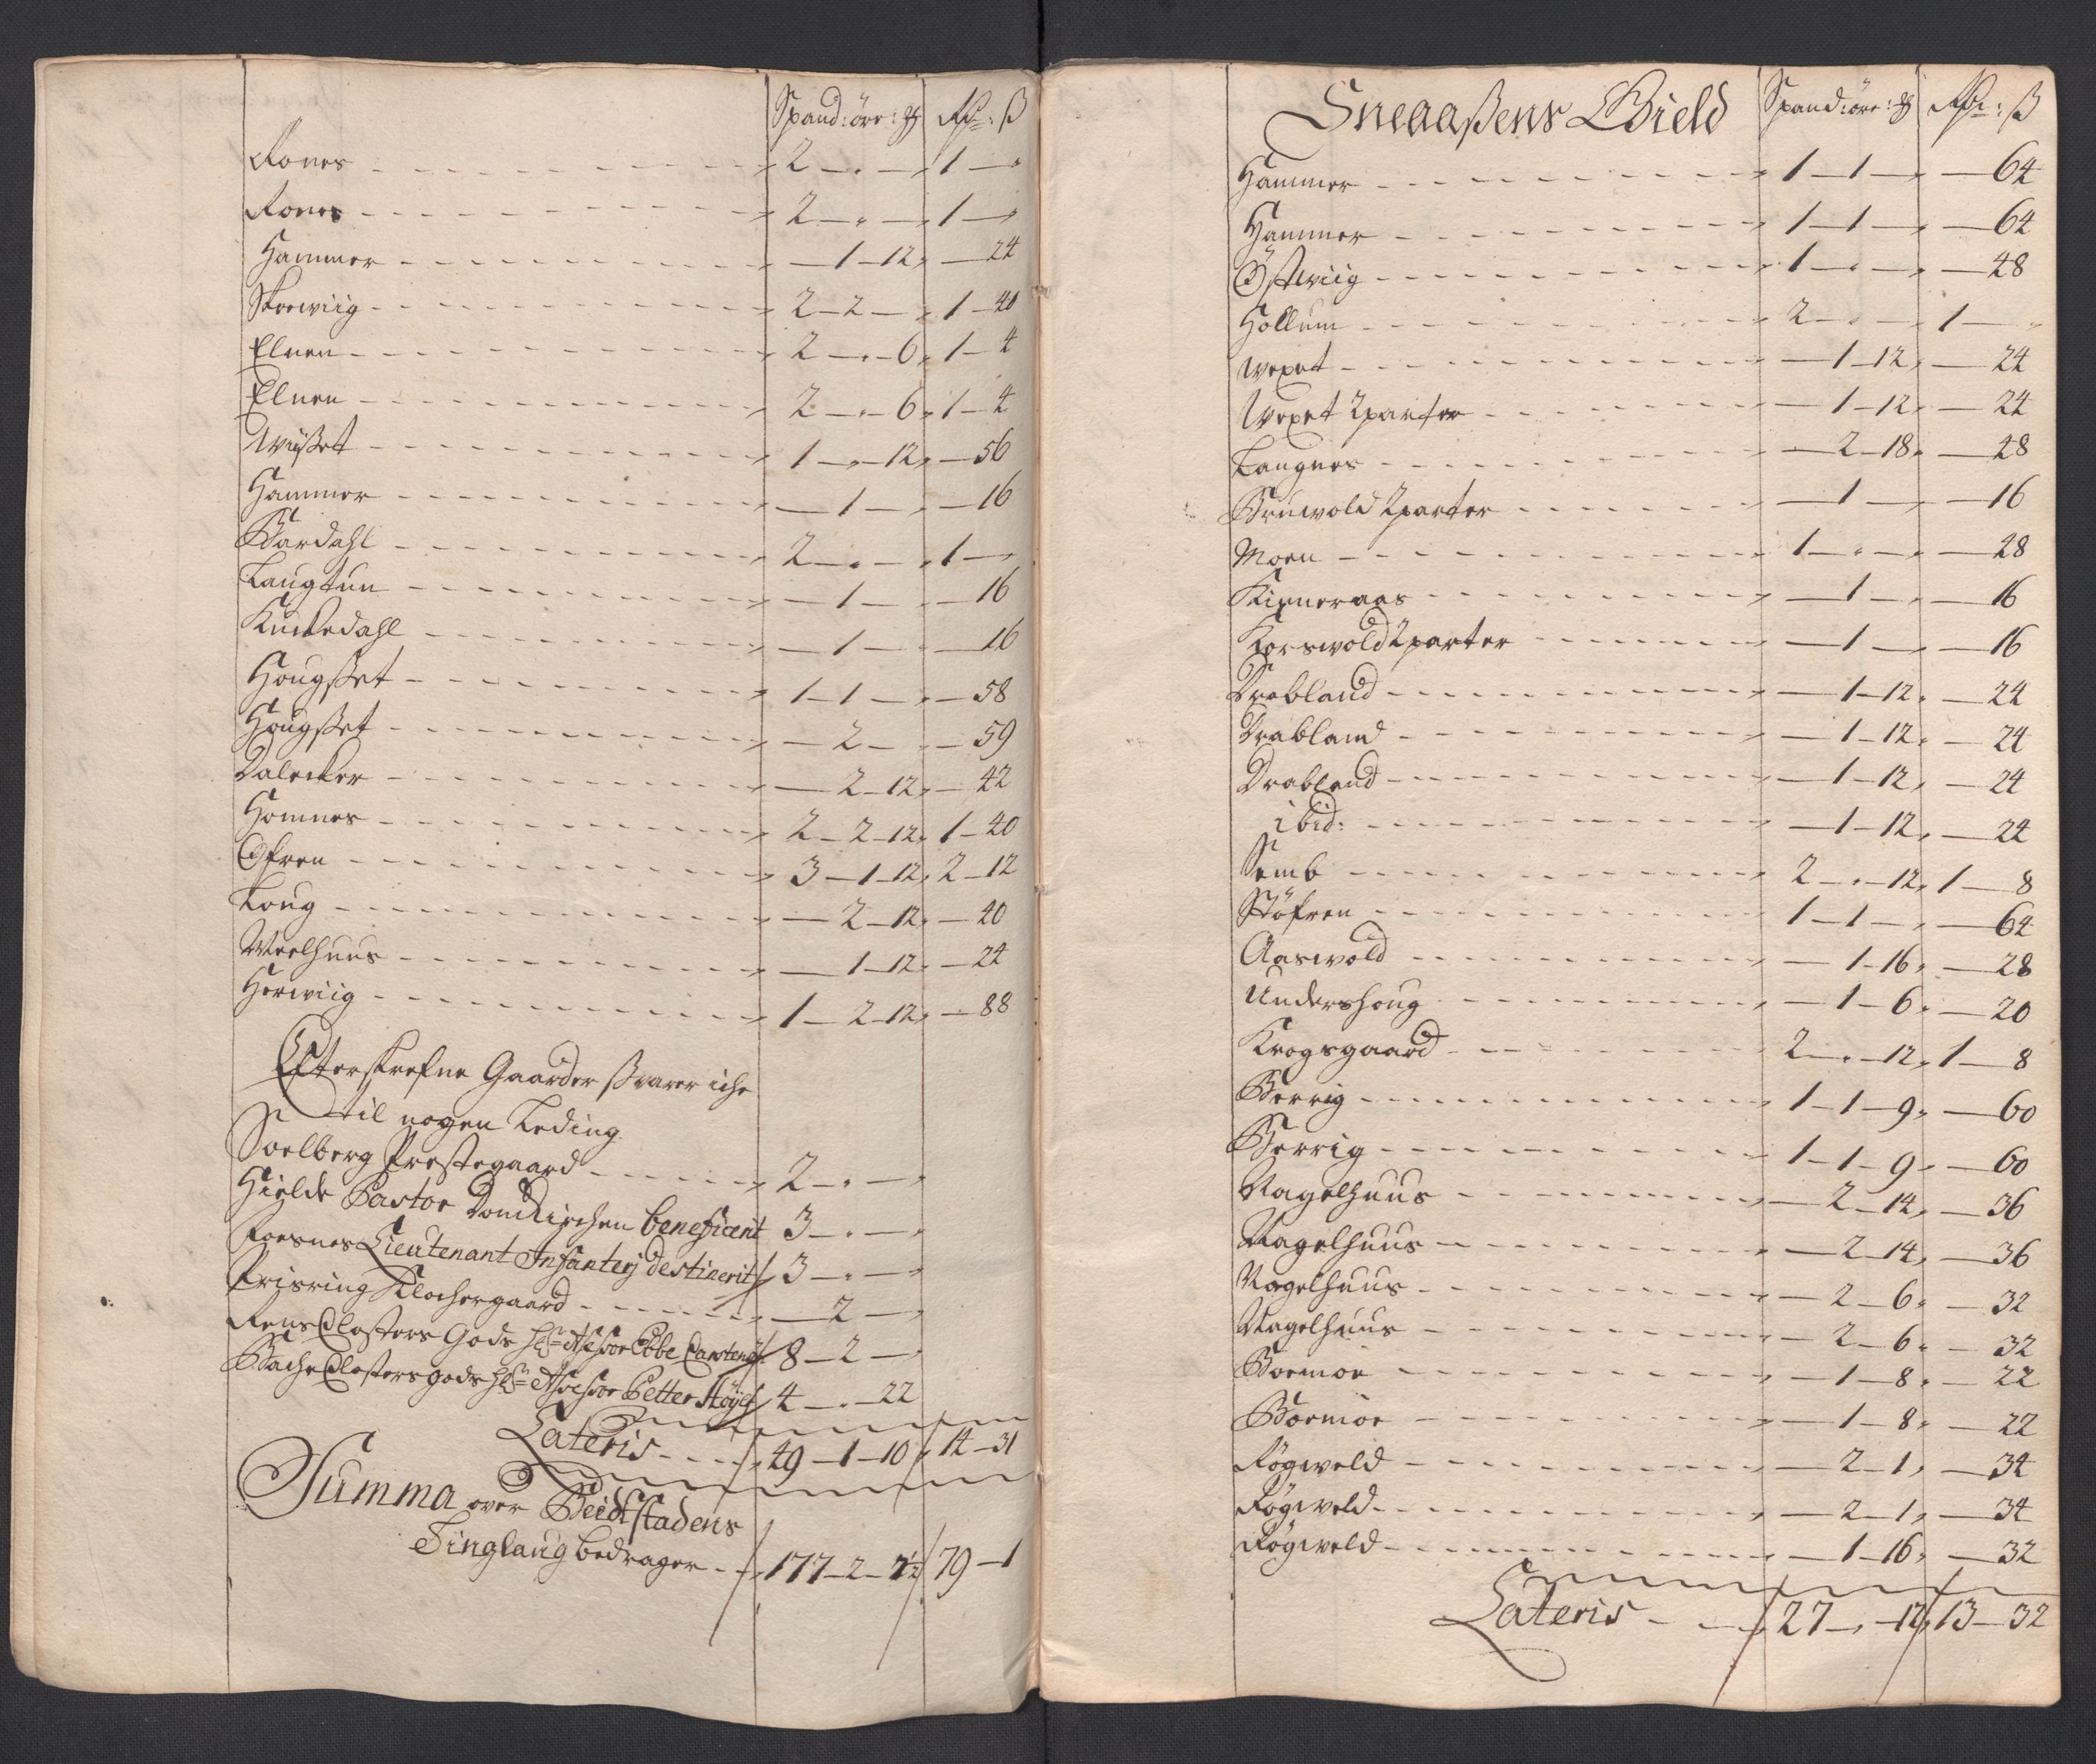 Spand: öre: ₰ Rdr: ß
Rones - 2 - " - " 1 - "
Rones - 2 - " - " 1 - "
Hammer - - 1 - 12, - 24
Skorwiig - 2 - 2 - " 1 - 40
Elnen - 2 - " - 6, 1 - 4
Elnen - 2 - " - 6, 1 - 4
Wüsset - 1 - " - 12, - 56
Hammer - - 1 - " - 16
Bardahl - 2 - " - " 1 - "
Langtun - - 1 - " - 16
Kuckedahl - - 1 - " - 16
Hougsset - 1 - 1 - " - 58
Hougsset - - 2 - " - 59
Dalecker - - 2 - 12, - 42
Homnes - 2 - 2 - 12, 1 - 40
Ofren - 3 - 1 - 12, 2 - 12
Loug - - 2 - 12, - 40
Weelhuus - - 1 - 12, - 24
Herwiig - 1 - 2 - 12, - 88
Efterskrefne Gaarder ßvarer iche
til nogen Leding
Soelberg Prestegaard - 2 - " - "
Hielde Pastor Domkirchen beneficerit 3 - " - "
Foesnes Lieutenant Infanterj destinerit 3 - " - "
Prisring Klochergaard - - 2 - "
Rens Closters Gods Hr: Assessor Ebbe Carstens 8 - 2 - "
Bache Closters gods Hr: Assessor Petter Höyer 4 - " - 22
Lateris - 49 - 1 - 10 14 - 31
Summa over Beidstadens
Tinglaug bedrager - 177 - 2 - 2½ 79 - 1
Sneaaßens Gield Spand: öre: ₰ Rdr: ß
Hammer - 1 - 1 - " - 64
Hammer - 1 - 1 - " - 64
Östwiig - 1 - " - " - 48
Hollum - 2 - " - 1 - "
Wexet - - 1 - 12, - 24
Wexet 2parter - - 1 - 12, - 24
Langnes - - 2 - 18, - 48
Bruwold 2parter - - 1 - " - 16
Moen - 1 - " - " - 28
Kinneraas - - 1 - " - 16
Korswold 2parter - - 1 - " - 16
Drabland - - 1 - 12, - 24
Drabland - - 1 - 12, - 24
Drabland - - 1 - 12, - 24
ibid: - - 1 - 12, - 24
Semb - 2 - " - 12, 1 - 8
Stöfren - 1 - 1 - " - 64
Aaswold - - 1 - 16, - 28
Undershoug - - 1 - 6, - 20
Krogsgaard - 2 - " - 12, 1 - 8
Berrig - 1 - 1 - 9, - 60
Berrig - 1 - 1 - 9, - 60
Nagelhuus - - 2 - 14, - 36
Nagelhuus - - 2 - 14, - 36
Nagelhuus - - 2 - 6, - 32
Nagelhuus - - 2 - 6, - 32
Boemoe - - 1 - 8, - 22
Boemoe - - 1 - 8, - 22
Fögweld - - 2 - 1, - 34
Fögweld - - 2 - 1, - 34
Fögweld - - 1 - 16, - 32
Lateris - 27 - " - 12, 13 - 32